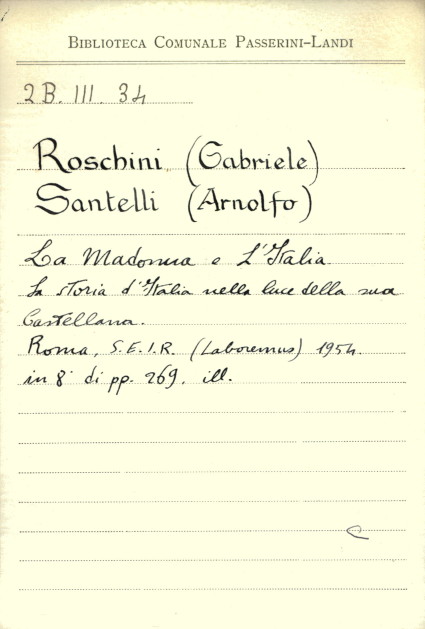 BIBLIOTECA COMUNALE PASSERINI-LANDI
2B. III. 34
Roschini (Gabriele)
Santelli (Arnolfo)
La Madonna e L'Italia
La storia d'Italia nella luce della sua
Castellana.
Roma, S.E.I.R. (Laboremus) 1954.
in 8° di pp. 269. ill.